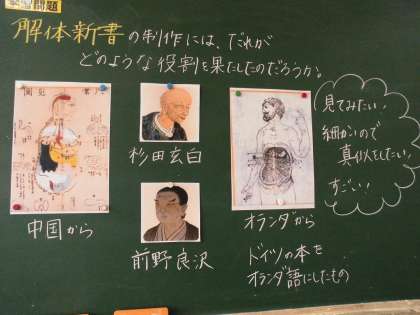 学習問題
解体新書の制作には、だれが
どのような役割を果たしたのだろうか。
中国から
杉田玄白
前野良沢
オランダから
ドイツの本を
オランダ語にしたもの
見てみたい!
細かいので
真似をしたい。
すごい!